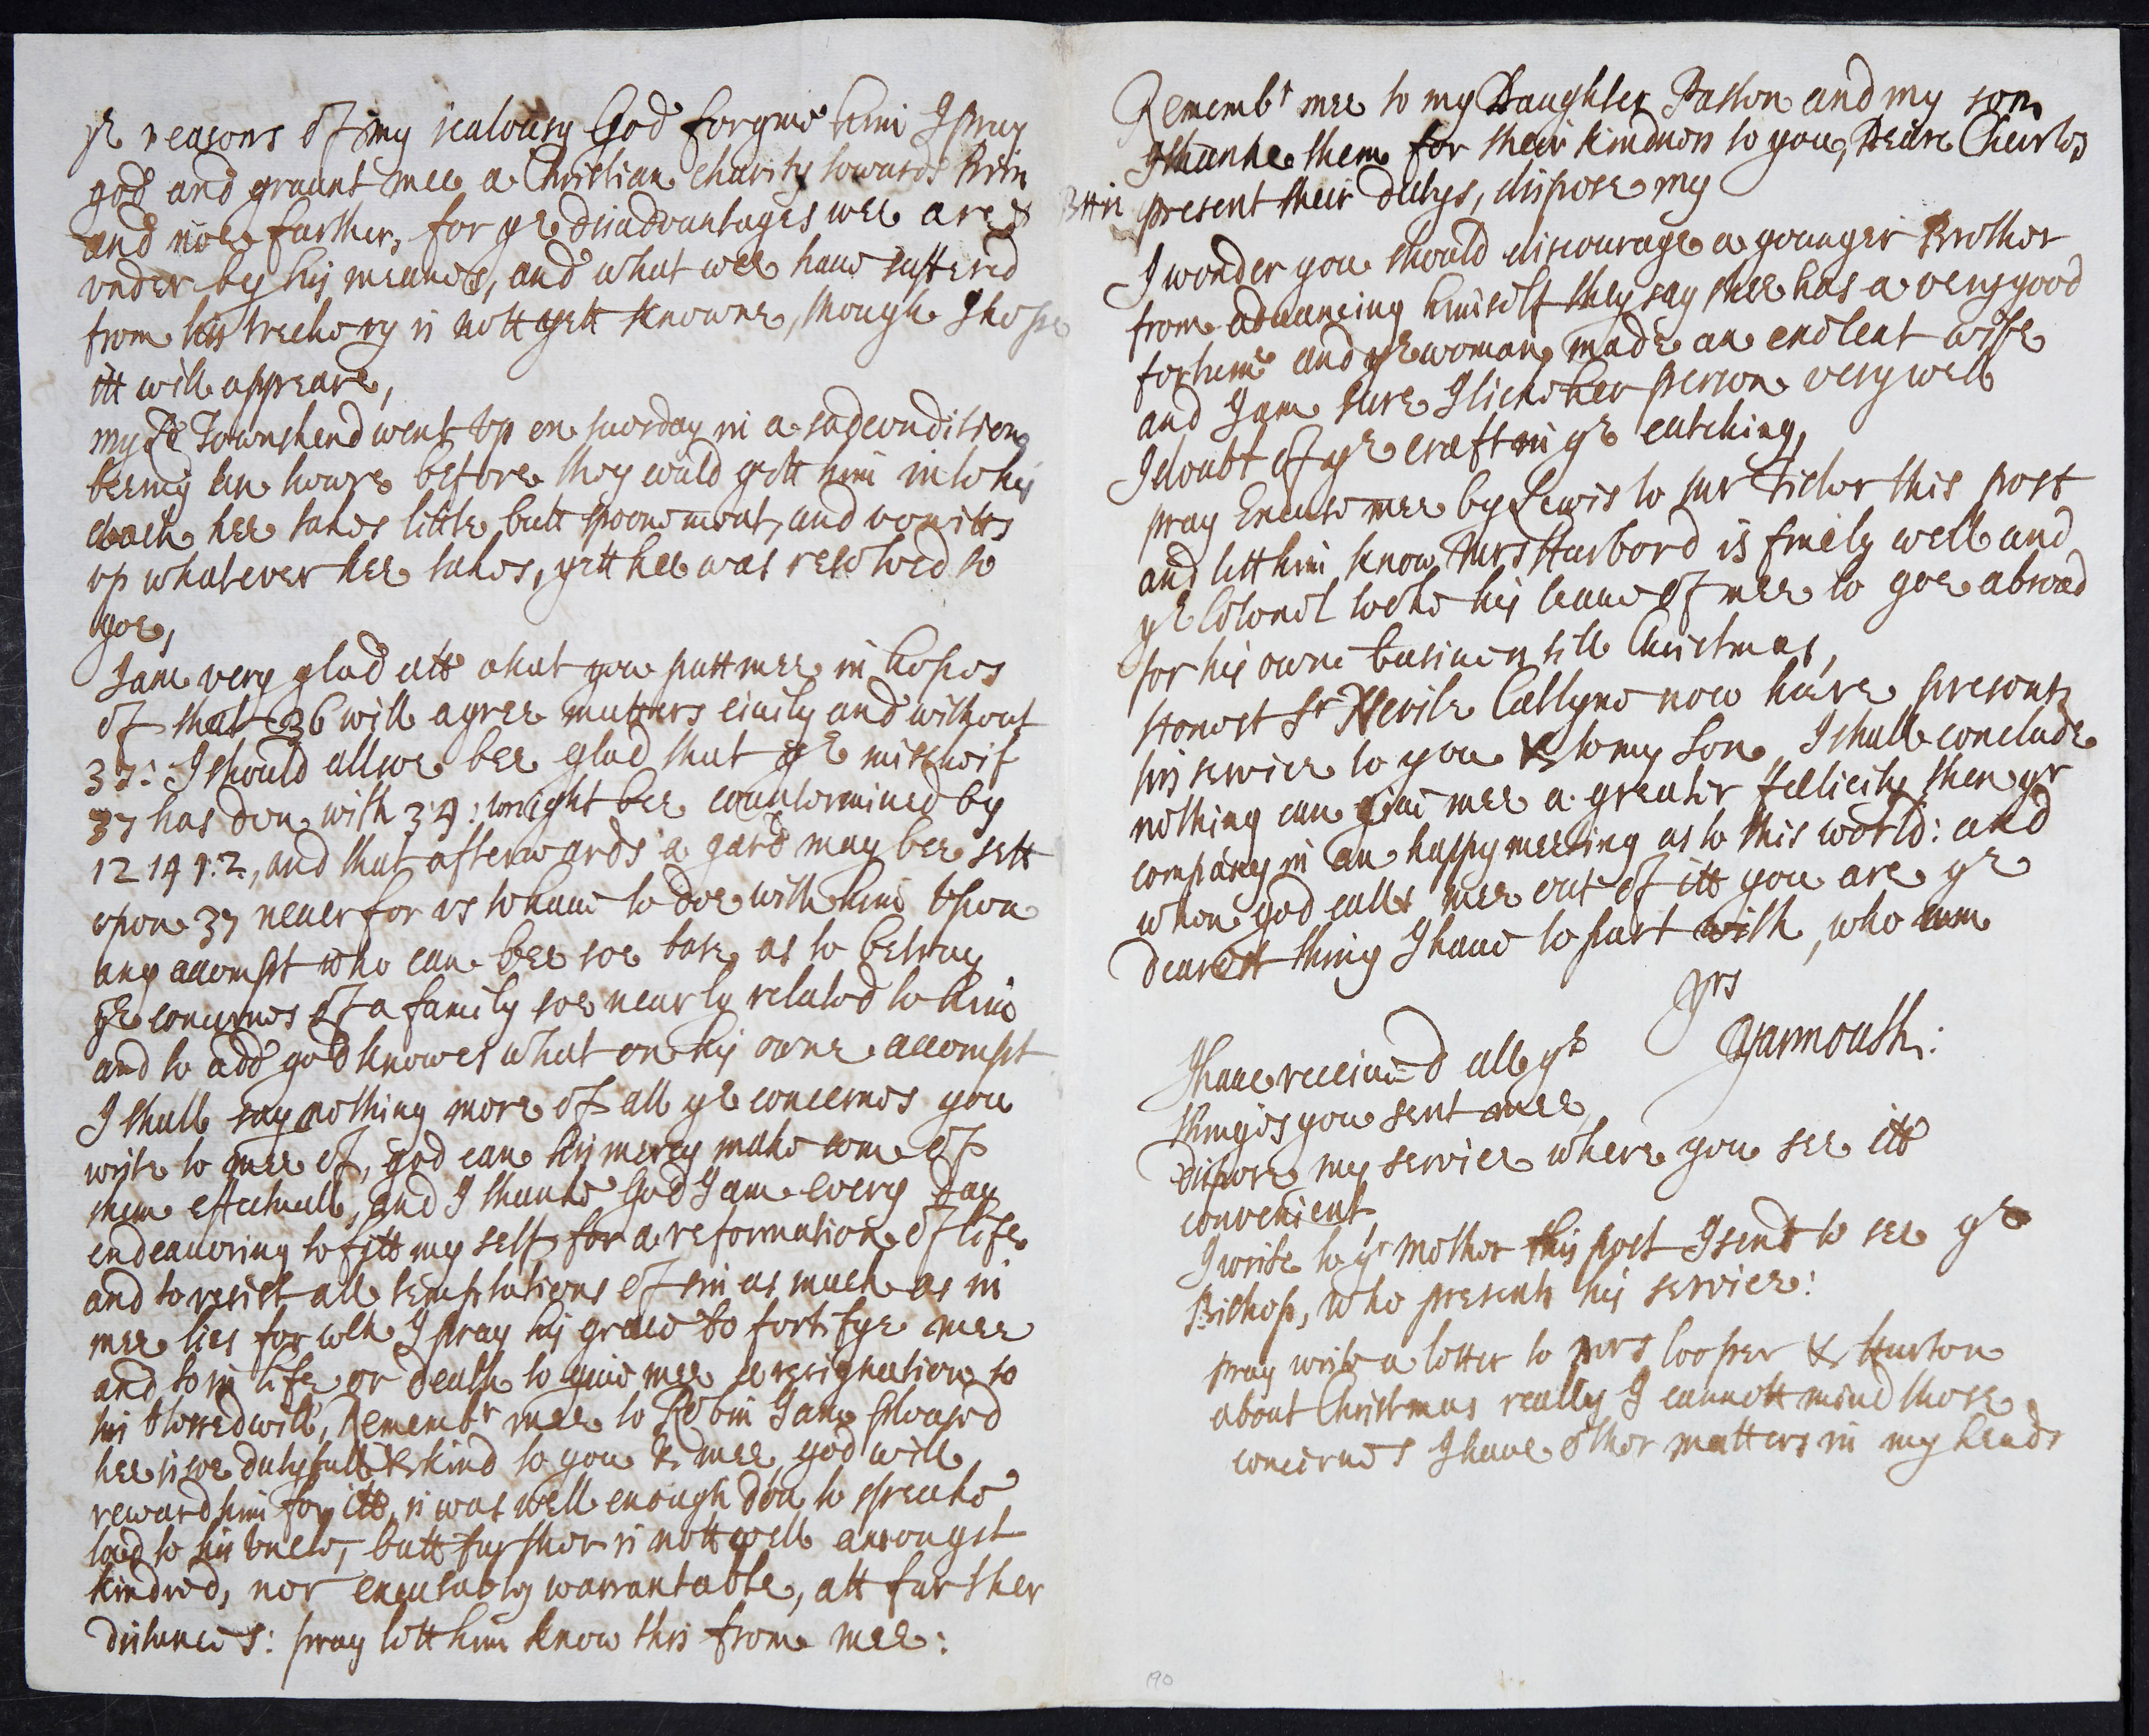 ye reasons of my iealousy God forgive him I pray
god and graunt mee a Christian charity towards him
and noe further, for ye disadvantages wee are
vnder by his meanes, and what wee haue suffered
from his trechery is nott yett knowne, though I hope
itt will appeare,
my Ld Townshend went vp on tuesday in a sad condition
beeing an houre before they could gett him into his
coach hee takes little butt spoonemeat, and vomitts
vp whatever hee takes, yett hee was resolved to
goe,
I am very glad att what you putt mee in hopes
of that 36 will agree matters civily and without
37: I should allsoe bee glad that ye mischeif
37 has don with 39: might bee countermined by
12 14 1:2, and that afterwards a gard may bee sett
vpon 37 neuer for vs to haue to doe with him vpon
any accompt who can bee soe base as to betray
ye concernes of a family soe nearly related to him
and to add god knowes what on his owne accompt
I shall say nothing more of all ye concernes you
write to mee of, god can his mercy make some of
them effectuall, and I thanke God I am every day
endeauoring to fitt my self for a reformation of life
and to resist all temptations of sin as much as in
mee lies for wch I pray his grace to fortifye mee
and so in life or death to giue mee a resignation to
his blessed will, Rememb'r mee to Robin I am pleased
hee is soe dutyfull & kind to you & mee, god will
reward him for itt, is was well enough don to speake
to his vncle, butt further is nott well amongst
kindred, nor excusably warrantable, att further
distances: pray lett him know this from mee:
Rememb'r mee to my Daughter Paston and my son
I thanke them for their kindness to you, Deare Charles
present their dutys, dispose my
I wonder you should discourage a younger Brother
from advancing himself they say shee has a very good
fortune and ye woman made an exelent wife
and I am sure I liked her person very well
I doubt of ye craft in ye catching,
pray Excuse mee by Lewis to Mr Ticlor this post
and lett him know Mrs Harbord is finely well and
ye Colonel tooke his leaue of mee to goe abroad
for his owne businen till Christmas,
Honest Sr Nevile Cattyne now heare presents
his service to you & to my Son, I shall conclude
nothing can giue mee a greater felicity then yr
company in an happy meeting as to this world: and
when god calls mee out of itt you are ye
dearest thing I haue to part with, who am
yrs
Yarmouth:
I haue receiued all ye
things you sent mee,
dispose my service where you see itt
convenient,
I write to yr mother this post I send to see ye
Bishop, who presents his service:
pray write a letter to Mrs Cooper & Hurton
about Christmas really I cannott mind those
concernes I haue other matters in my heade
190